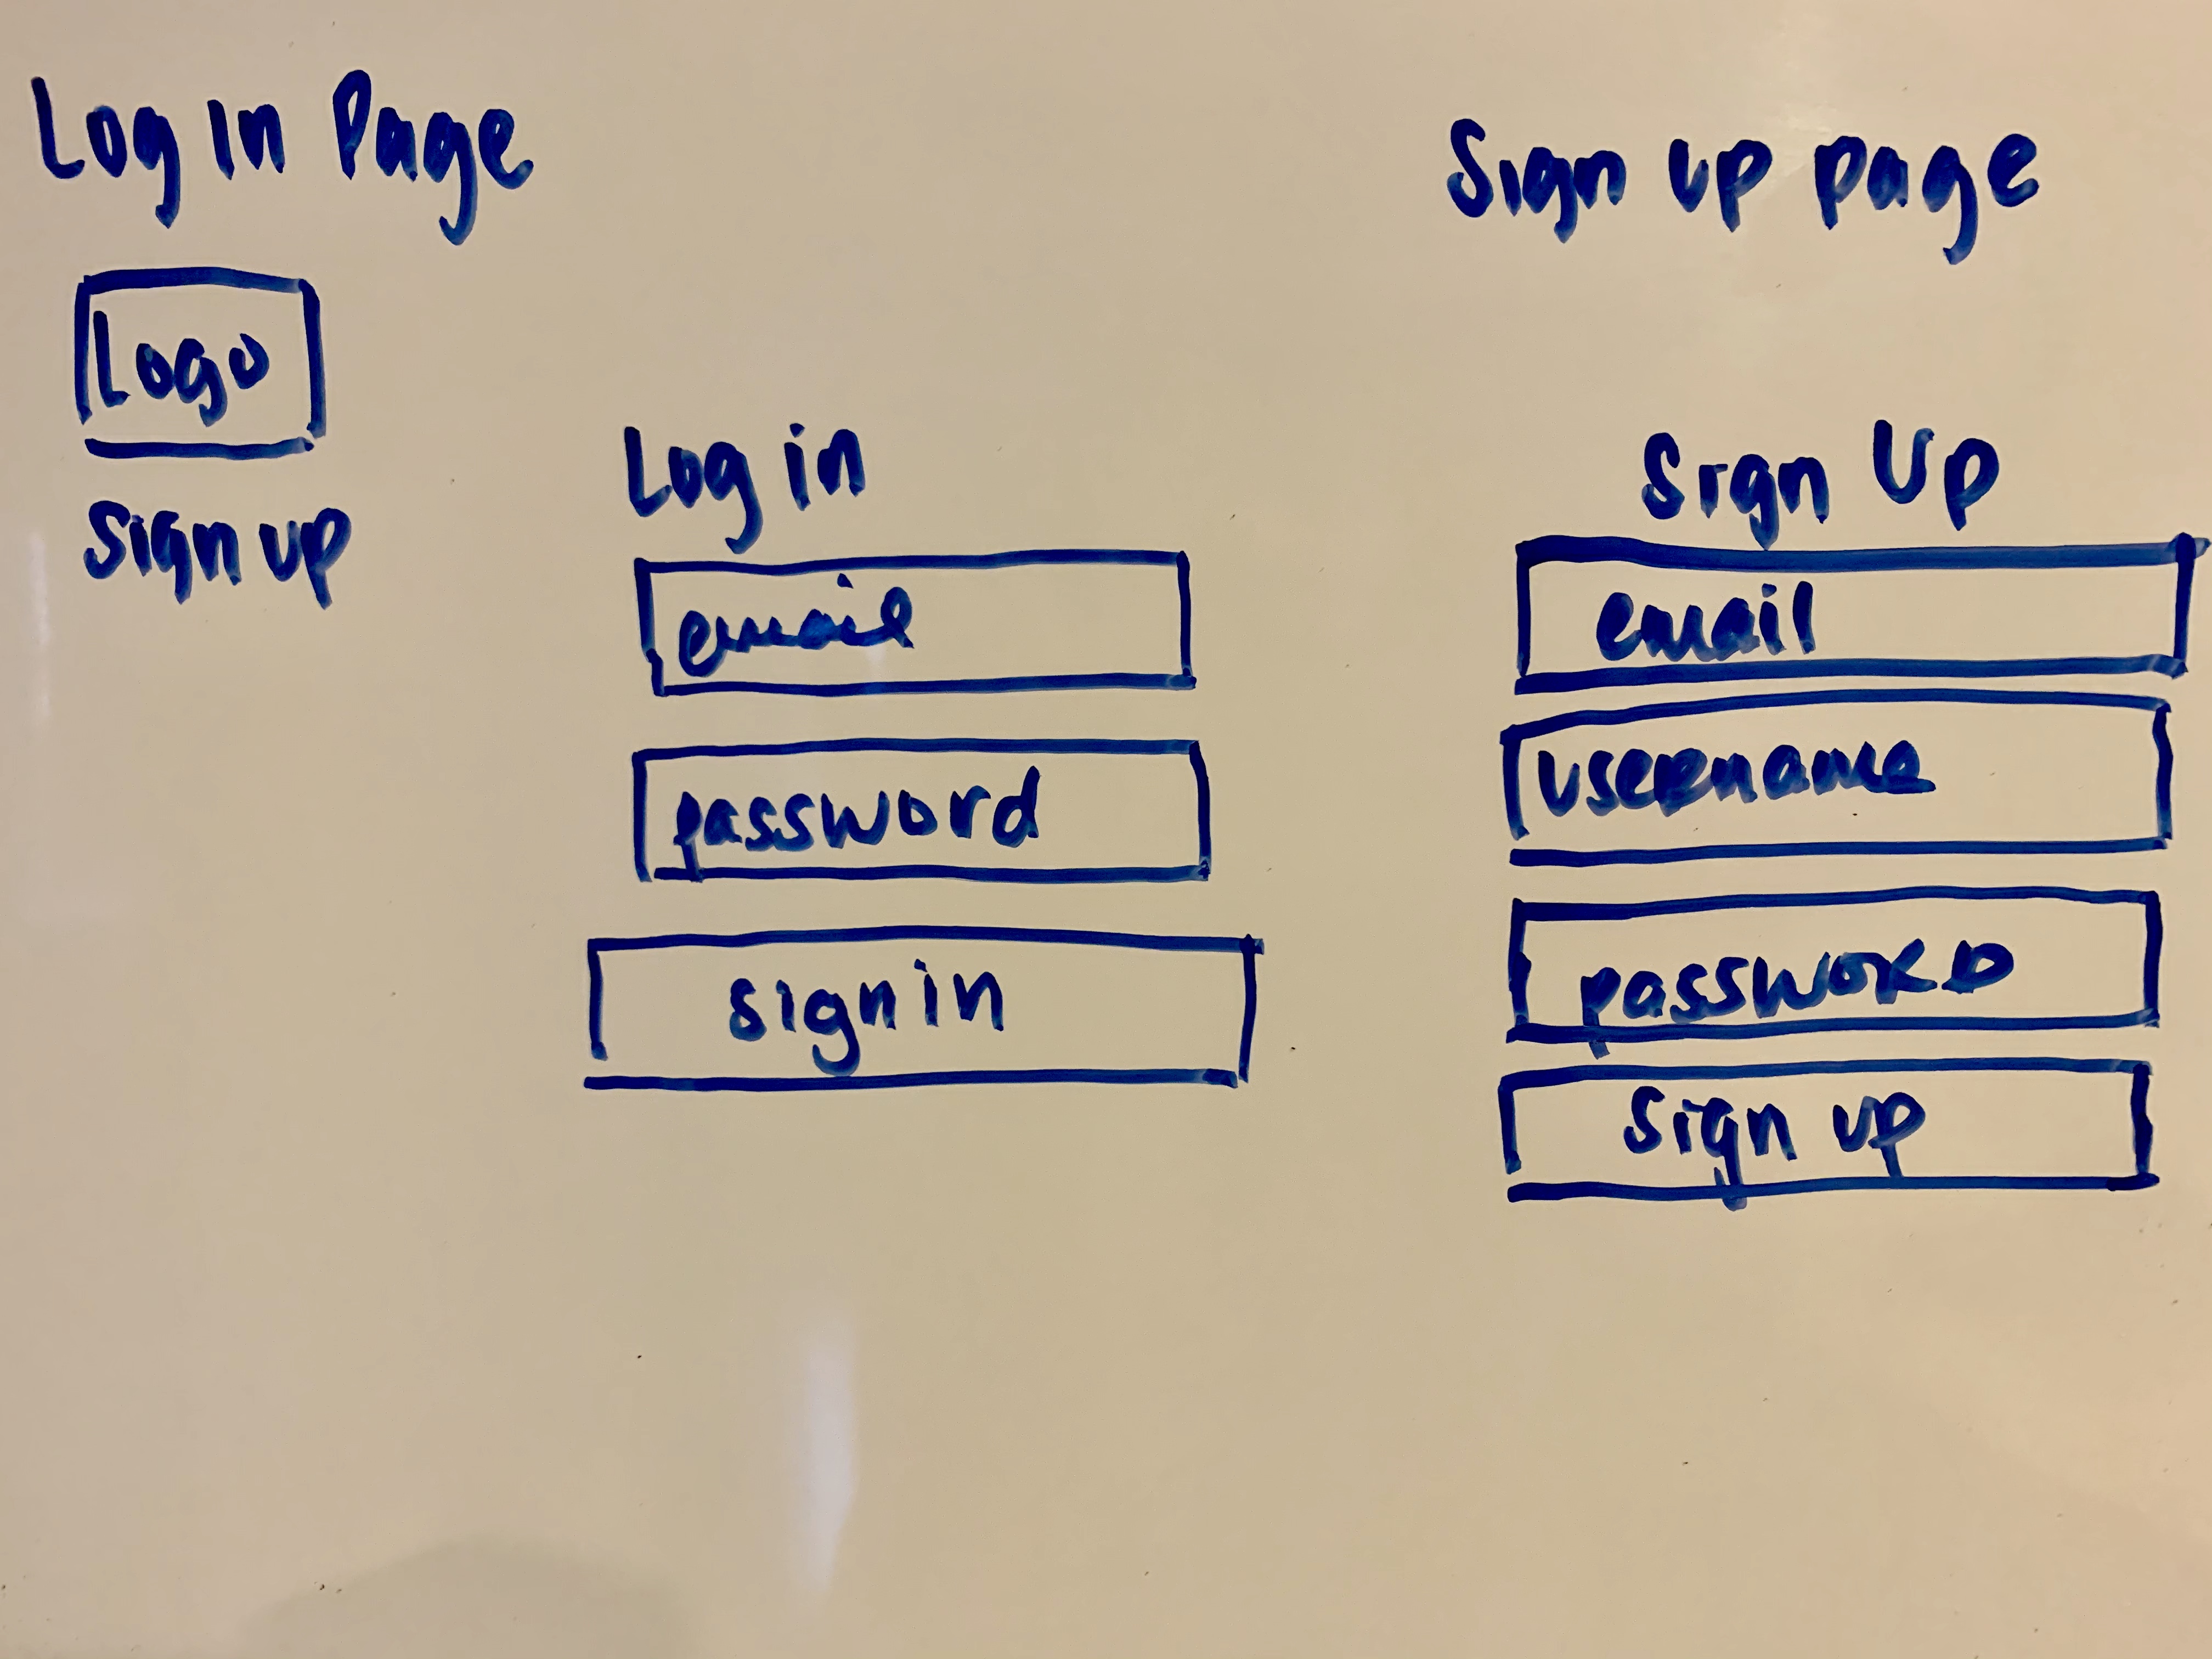 Log in Page
Logo
Sign up
Log in
email
password
sign in
Sign up page
Sign Up
email
username
passwoRD
Sign up